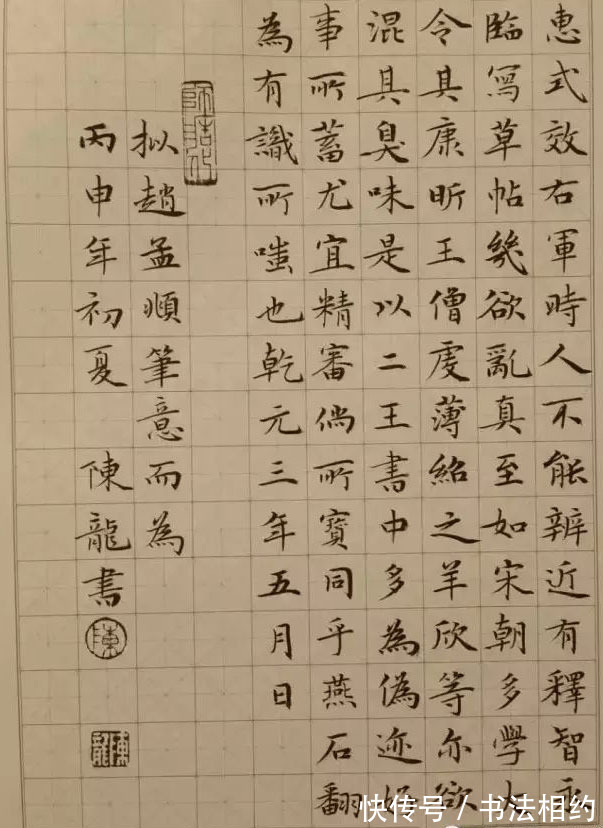 惠式效右軍時人不能辨近有釋智永
臨寫草帖幾欲亂真至如宋朝多學大
令其康昕王僧虔薄紹之羊欣等亦欲
混其臭味是以二王書中多為偽迹好
事所蓄尤宜精審倘所寶同乎燕石翻
為有識所嗤也乾元三年五月日
拟趙孟順筆意而為
丙申年初夏 陳龍書
陳
陳龍
快传号/书法相约